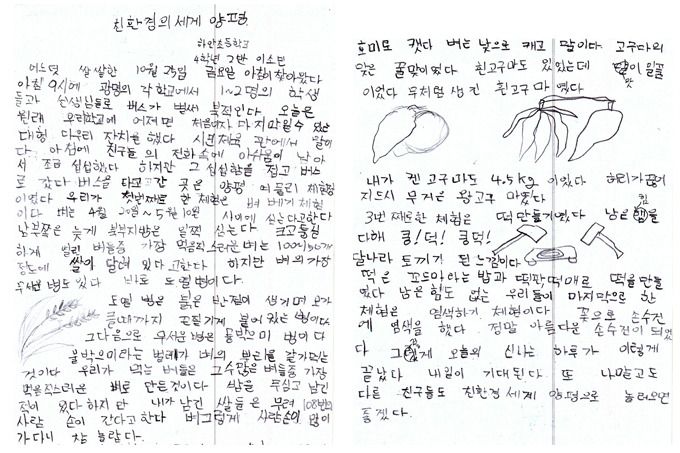 친환경의 세계 양평
하안초등학교
4학년 2반 이소민
어느덧 쌀쌀한 10월 25일 금요일 아침이 찾아왔다
아침 9시에 광명의 각 학교에서 1~2명의 학생
들과 선생님들로 버스가 벌써 북적인다 오늘은
원래 우리학교에 어쩌면 처음이자 마지막일수 있는
대형 다우리 잔치를 했다 시민체육관에서 말이
다 아침에 친구들의 전화속에 아쉬움이 남아
서 조금 섭섭했다 하지만 그 섭섭함을 접고 버스
로 갔다 버스를 타고 간 곳은 양평 여물리 체험장
이였다 우리가 첫번째로 한 체험은 벼 베기 체험
이다 벼는 4월 20일~5월 10일 사이에 심는다고한다
남부쪽은 늦게 북부지방은 일찍 심는다 크고 둥글
하게 열린 벼들중 가장 먹음직스러운 벼는 100%
정도에 쌀이 달려 있다고한다 하지만 벼의 가장
무서운 병도 있다 바로 도열병이다
도열병은 붉은 반점이 생기며
끝까지 도열기게 붙어 있는 병이다
그다음으로 무서운 병은 콩박으미 병이다
콩박으미라는 벌레가 벼의 부분을 갉아먹는
것이다 우리가 먹는 벼들은 그 수많은 벼들중 가장
먹음직스러운 벼로 만든것이다 밥을 무심코 남긴
적이 있다 하지만 내가 남긴 쌀들은 무려 108번의
사람 손이 간다고한다 벼 그렇게 사람손이 많이
가다니 참 놀랍다.
호미로 캤다 벼는 낫으로 캐고 말이다 고구마의
맛은 꿀맛이였다 흰고구마도 있었는데 맛이 일품
이였다 무처럼 생긴 흰고구마였다
내가 캔 고구마도 4.5kg 이였다 허리가 끊어
지드시 무거운 왕고구마였다
3번째로한 체험은 떡 만들기였다 남은 힘을
다해 쿵!덕! 쿵덕!
달나라 토끼가 된 느낌이다
떡은 꼬드아라는 밥과 떡판,떡매로 떡을 만들
였다 남은힘도 없는 우리들이 마지막으로 한
체험은 염색하기 체험이다 꽃으로 손수건
에 염색을 했다. 정말 아름다운 손수건이 되었
다 그렇게 오늘의 신나는 하루가 이렇게
끝났다 내일이 기대된다. 또 나말고도
다른 친구들도 친환경 세계 양평으로 놀러오면
좋겠다.